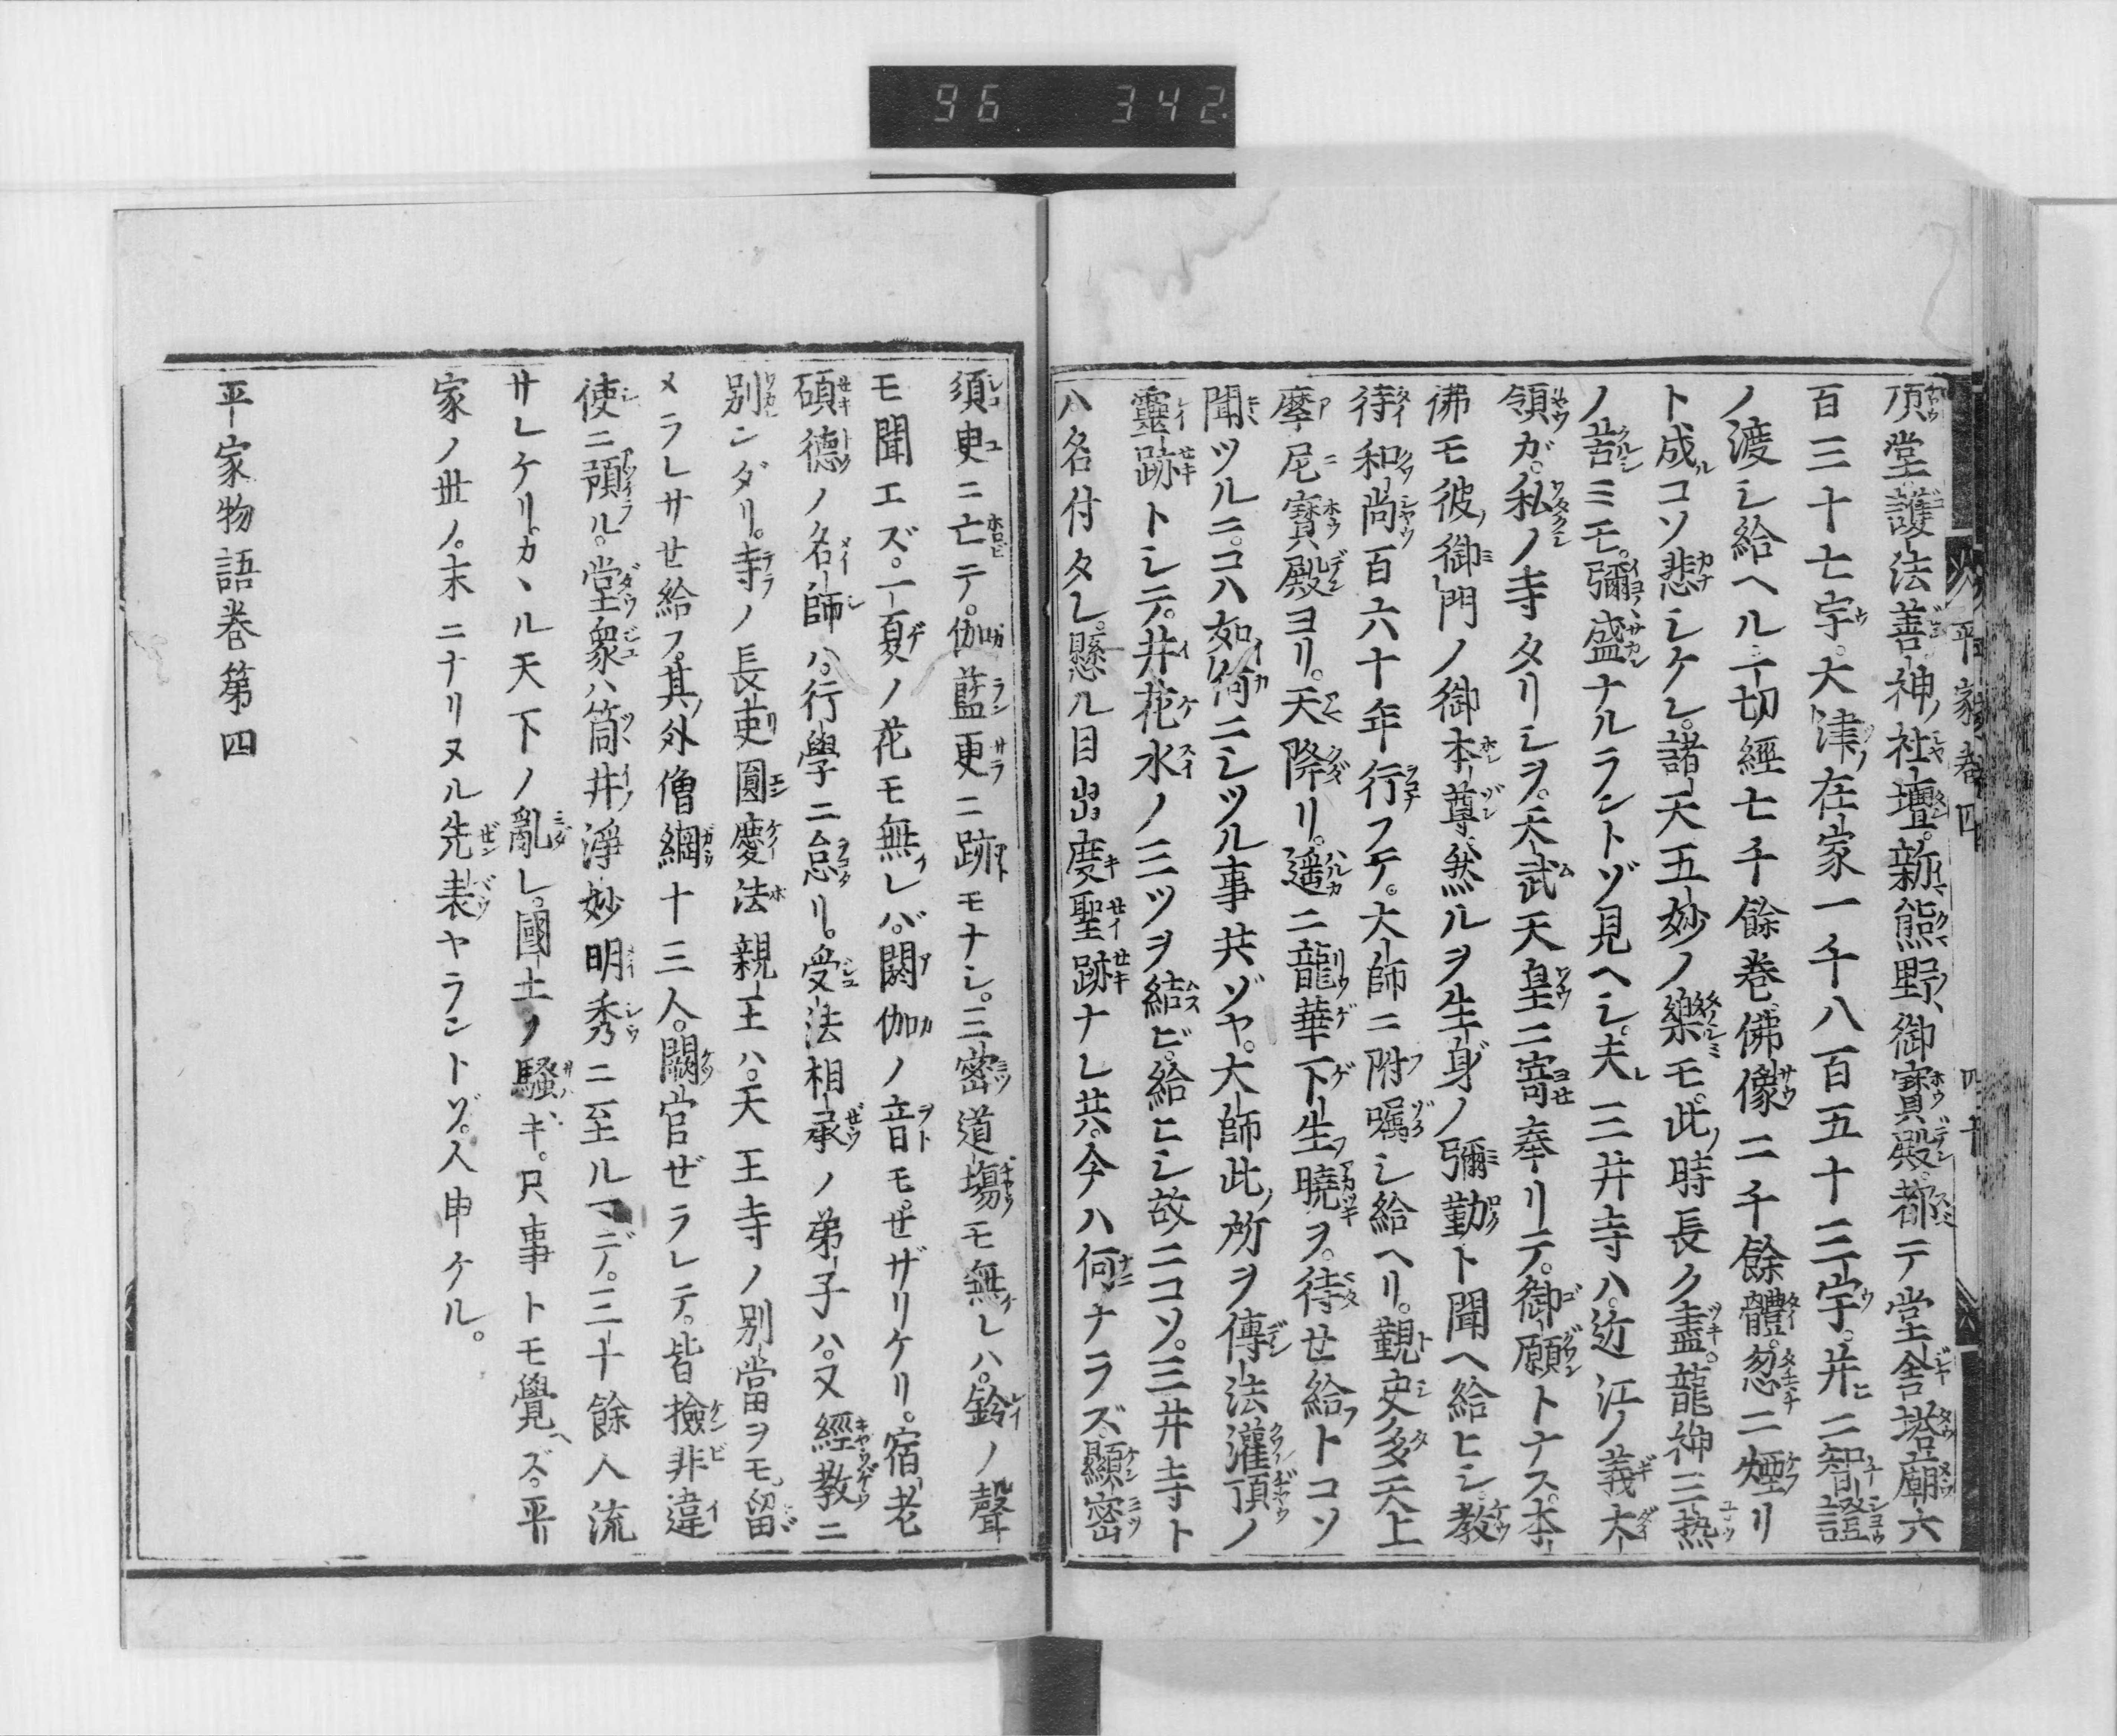 96 342.
平家巻四 四十
頂堂護法善神ノ社壇。新熊野ノ御寶殿。都テ堂舎塔廟六
百三十七宇。大津ノ在家一千八百五十三宇。并ニ智證
ノ渡シ給ヘル一切經七千餘巻佛像二千餘體。忽ニ煙リ
ト成ルコソ悲シケレ。諸天五妙ノ樂モ。此ノ時長ク盡。龍神三熱
ノ苦ミモ。彌盛ナルラントゾ見ヘシ。夫レ三井寺ハ。近江ノ義大
領ガ。私ノ寺タリシヲ。天武天皇ニ寄奉リテ。御願トナス。本
佛モ彼ノ御門ノ御本尊。然ルヲ生身ノ彌勒ト聞ヘ給ヒシ教
待和尚百六十年行フテ。大師ニ附嘱シ給ヘリ。覩史多天上
摩尼寶殿ヨリ。天降リ。遥ニ龍華下生ノ曉ヲ。待セ給フトコソ
聞ツルニ。コハ如何ニシツル事共ゾヤ。大師此ノ所ヲ傳法灌頂ノ
靈跡トシテ。井花水ノ三ツヲ結ビ。給ヒシ故ニコソ。三井寺ト
ハ名付タレ。懸ル目出度聖跡ナレ共。今ハ何ナラズ。顯密
須臾ニ亡テ。伽藍更ニ跡モナシ。三密道場モ無レハ。鈴ノ聲
モ聞エズ。一夏ノ花モ無レバ。閼伽ノ音モ。せザリケリ。宿老
碩德ノ名師ハ。行學ニ怠リ。受法相承ノ弟子ハ。又經教ニ
別ンダリ。寺ノ長吏圓慶法親王ハ。天王寺ノ別當ヲモ。留
メラレサセ給フ。其ノ外僧綱十三人。闕官ぜラレテ。皆撿非違
使ニ預ル。堂衆ハ筒井ノ淨妙明秀ニ至ルマデ。三十餘人流
サレケリ。カヽル天下ノ亂レ。國土ノ騷ギ。只事トモ覺ヘズ。平
家ノ世ノ。末ニナリヌル先表ヤラントゾ。人申ケル。
平家物語巻第四